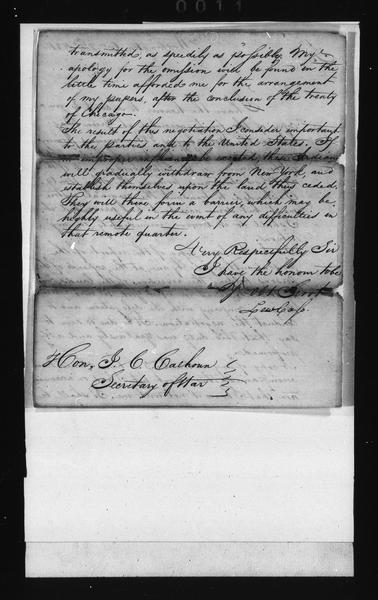 0011
transmitted, as speedily as possible. My
apology for the omission will be found in the
little time afforded me for the arrangement
of my papers, after the conclusion of the treaty
of Chicago.
The result of this negotiation I consider important
to the parties and to the United States. If
will gradually withdraw from New York, and
establish themselves upon the land thus ceded.
They will there form a barrier, which may be
highly useful in the event of any difficulties in
that remote quarter.
Very Respectfully Sir
I have the honour to be
Lew Cass
Hon. J. C Calhoun
Secretary of War